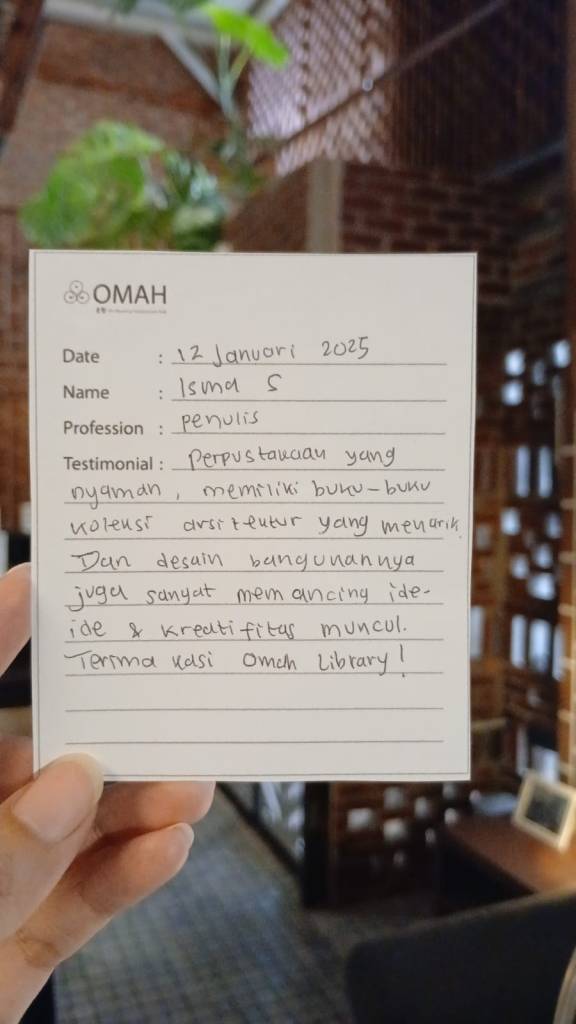 OMAH
Date : 12 Januari 2025
Name : Isma S
Profession : penulis
Testimonial : Perpustakaan yang
nyaman, memiliki buku-buku
koleksi arsitektur yang menarik.
Dan desain bangunannya
juga sangat memancing ide-
ide & kreatifitas muncul.
Terima kasi Omah Library!